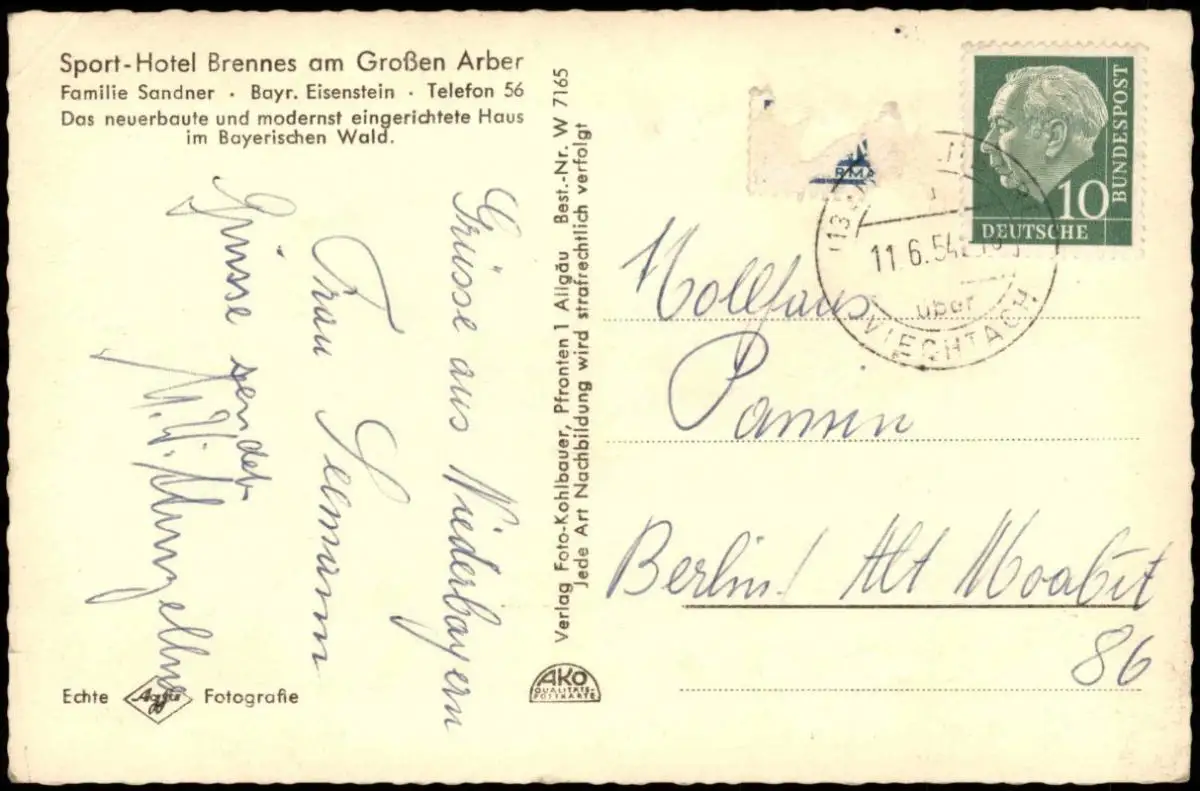 Sport-Hotel Brennes am Großen Arber
Familie Sandner · Bayr. Eisenstein · Telefon 56
Das neuerbaute und modernst eingerichtete Haus
im Bayerischen Wald.
Grüsse aus Niederbayern
Frau
Grüsse sendet
Echte Agfa Fotografie
Verlag Foto-Kohlbauer, Pfronten 1 Allgäu Best.-Nr. W 7165
Jede Art Nachbildung wird strafrechtlich verfolgt
AKO
QUALITÄTS-
POSTKARTE
RMA
DEUTSCHE
BUNDESPOST
10
(13
11.6.54
über
VIECHTACH
Berlin / Alt Moabit
86